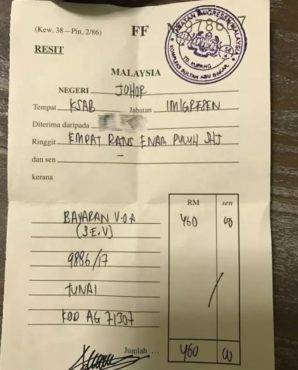 (Kew. 38—Pin. 2/86)
FF
RESIT
MALAYSIA
NEGERI JOHOR
Tempat KSAB Jabatan IMIGRESEN
Diterima daripada
Ringgit EMPAT RATUS ENAM PULUH SHJ
dan sen —
kerana
RM sen
BAYARAN V.O.A 460 00
(S.E.V)
9886/17
TUNAI
KOD AG 71307
Jumlah ... 460 00
KOMPLEKS SULTAN ABU BAKAR